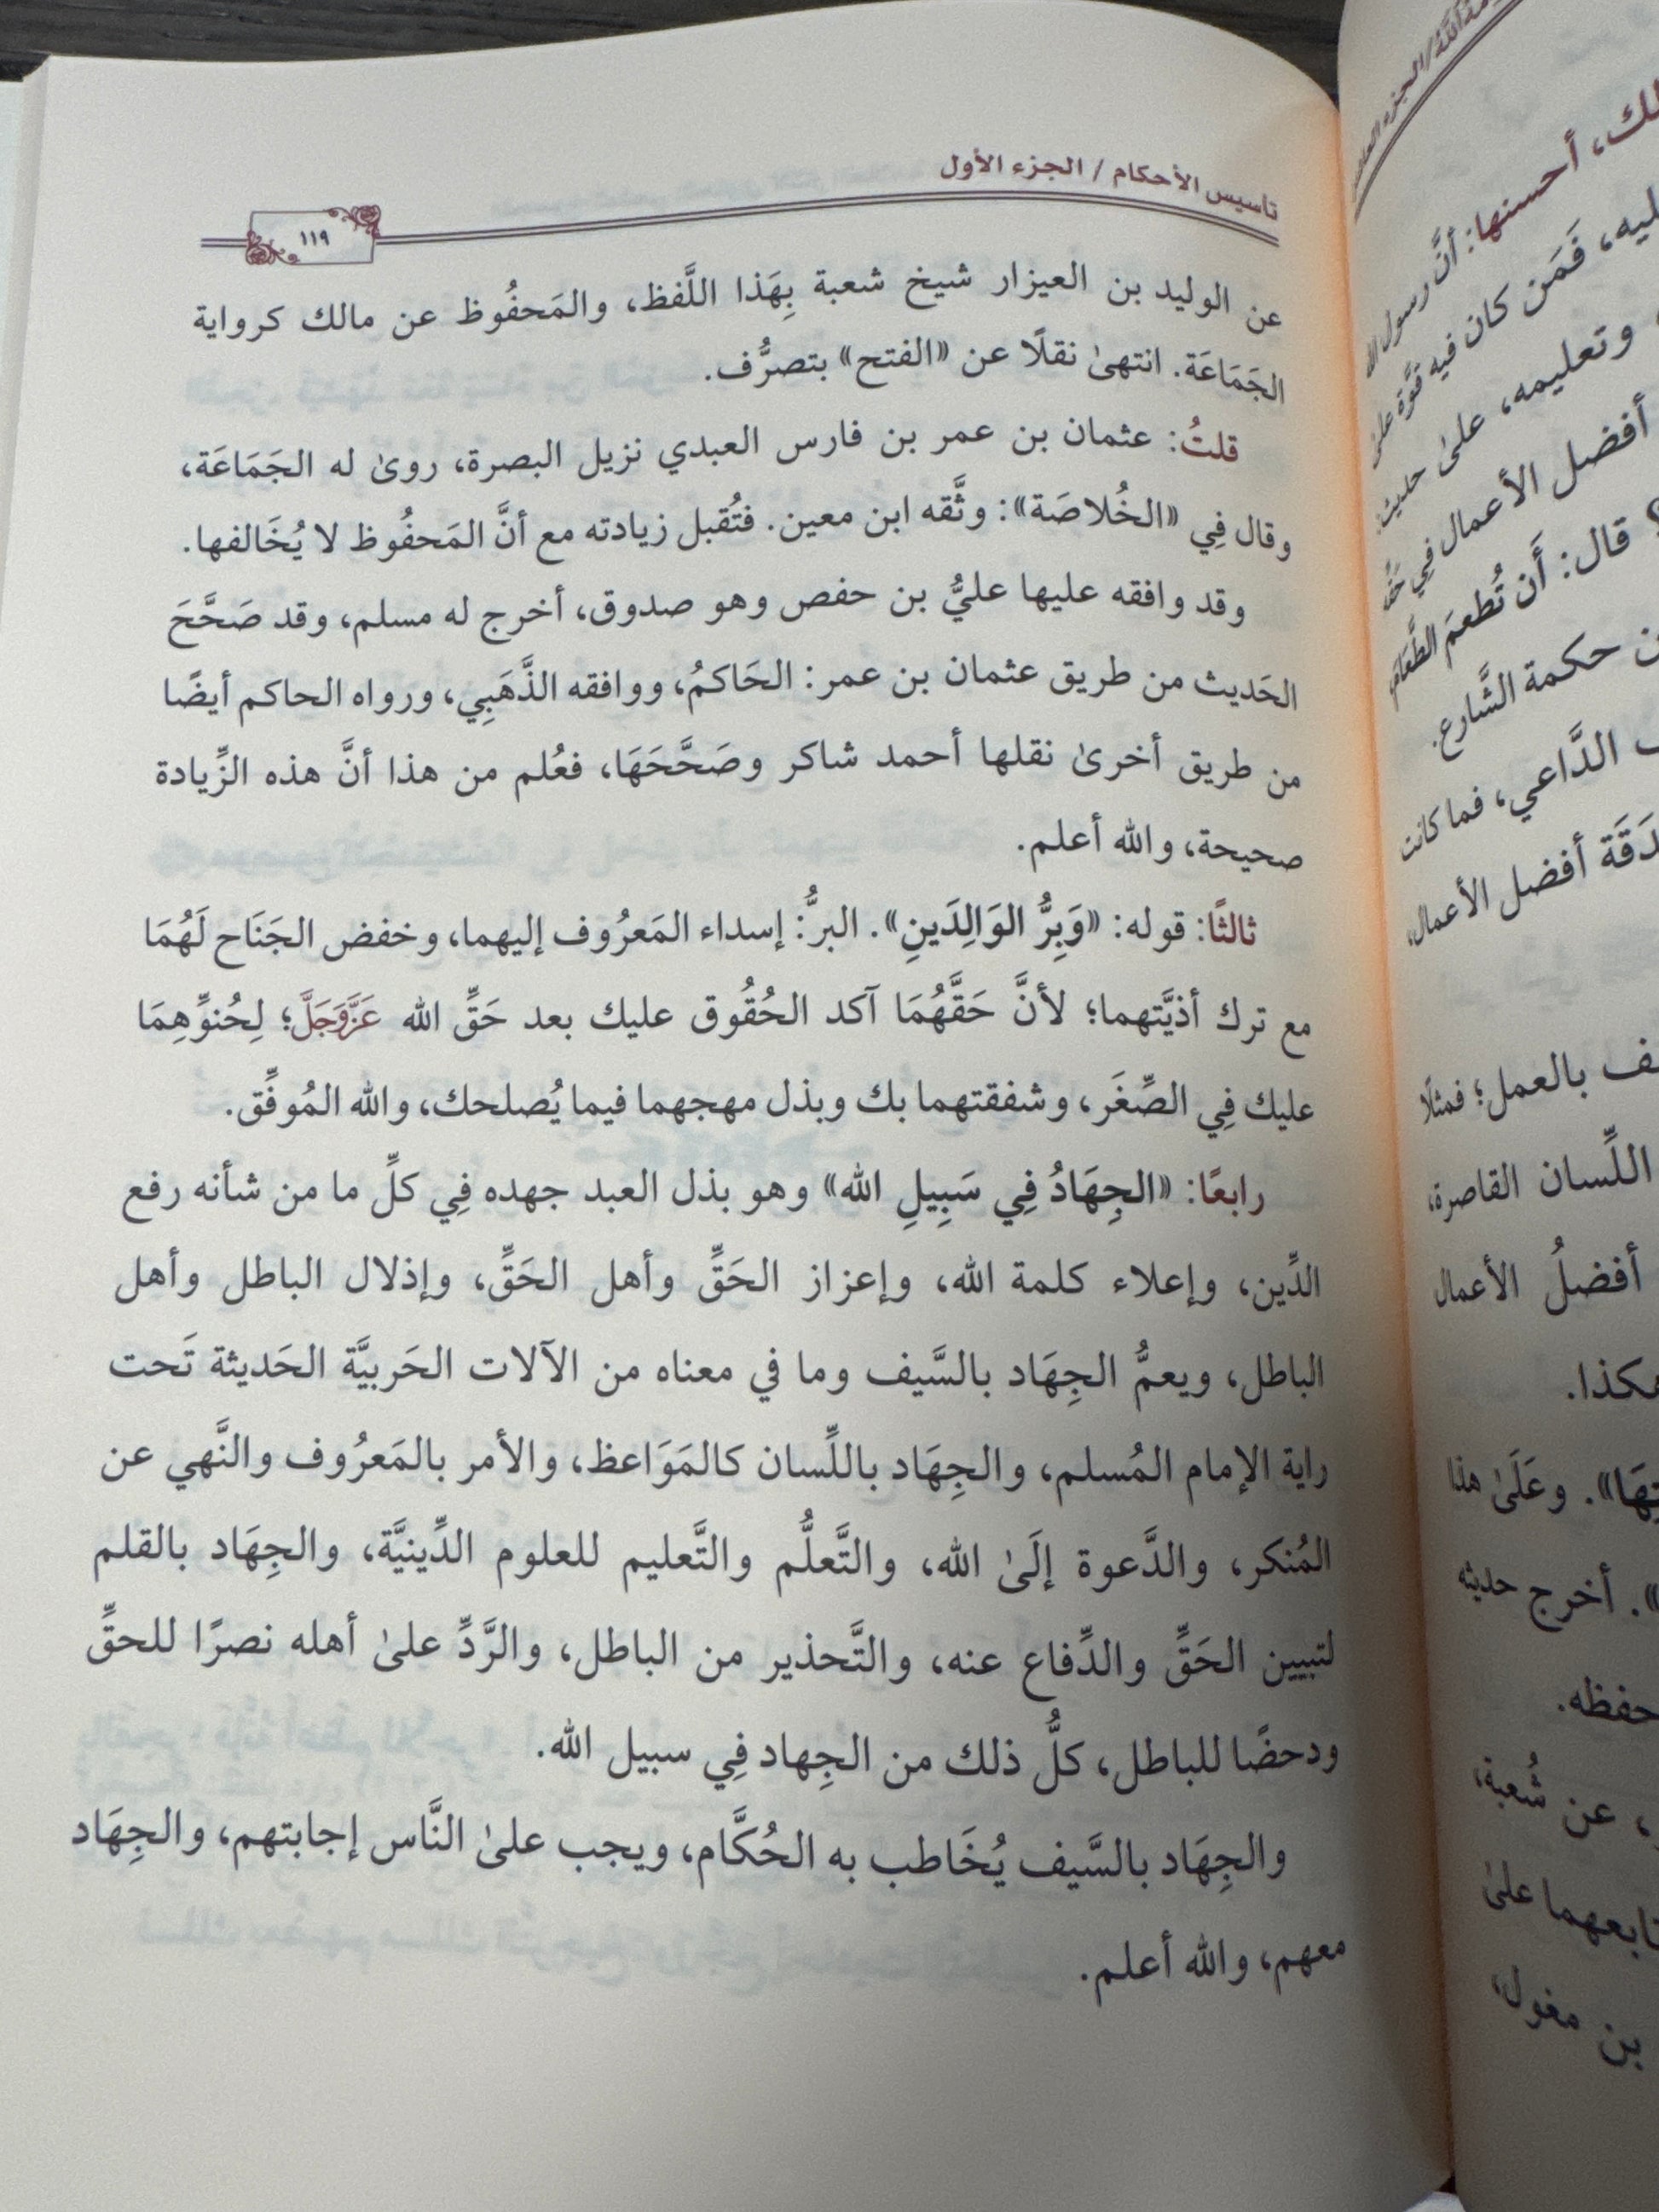 تأسيس الأحكام / الجزء الأول
١١٩
عن الوليد بن العيزار شيخ شعبة بِهَذا اللَّفظ، والمَحفُوظ عن مالك كرواية
الجَمَاعَة. انتهىٰ نقلًا عن «الفتح» بتصرُّف.
قلتُ: عثمان بن عمر بن فارس العبدي نزيل البصرة، روىٰ له الجَمَاعَة،
وقال فِي «الخُلاصَة»: وثَّقه ابن معين. فتُقبل زيادته مع أنَّ المَحفُوظ لا يُخَالفها.
وقد وافقه عليها عليُّ بن حفص وهو صدوق، أخرج له مسلم، وقد صَحَّحَ
الحَديث من طريق عثمان بن عمر: الحَاكمُ، ووافقه الذَّهَبِي، ورواه الحاكم أيضًا
من طريق أخرىٰ نقلها أحمد شاكر وصَحَّحَهَا، فعُلم من هذا أنَّ هذه الزِّيادة
صحيحة، والله أعلم.
ثالثًا: قوله: «وَبِرُّ الوَالِدَينِ». البرُّ: إسداء المَعرُوف إليهما، وخفض الجَنَاح لَهُمَا
مع ترك أذيَّتهما؛ لأنَّ حَقَّهُمَا آكد الحُقُوق عليك بعد حَقِّ الله عَزَّوَجَلَّ؛ لِحُنوِّهِمَا
عليك فِي الصِّغَر، وشفقتهما بك وبذل مهجهما فيما يُصلحك، والله المُوفِّق.
رابعًا: «الجِهَادُ فِي سَبِيلِ الله» وهو بذل العبد جهده فِي كلِّ ما من شأنه رفع
الدِّين، وإعلاء كلمة الله، وإعزاز الحَقِّ وأهل الحَقِّ، وإذلال الباطل وأهل
الباطل، ويعمُّ الجِهَاد بالسَّيف وما في معناه من الآلات الحَربيَّة الحَديثة تَحت
راية الإمام المُسلم، والجِهَاد باللِّسان كالمَوَاعظ، والأمر بالمَعرُوف والنَّهي عن
المُنكر، والدَّعوة إلَىٰ الله، والتَّعلُّم والتَّعليم للعلوم الدِّينيَّة، والجِهَاد بالقلم
لتبيين الحَقِّ والدِّفاع عنه، والتَّحذير من الباطل، والرَّدِّ علىٰ أهله نصرًا للحقِّ
ودحضًا للباطل، كلُّ ذلك من الجِهاد فِي سبيل الله.
والجِهَاد بالسَّيف يُخَاطب به الحُكَّام، ويجب علىٰ النَّاس إجابتهم، والجِهَاد
معهم، والله أعلم.
أحسنها: أنَّ رسول الله
فَمَن كان فيه قوَّة علىٰ
وتعليمه، علىٰ
أفضل الأعمال فِي
قال: أَن تُطعمَ الطَّعَامَ،
حكمة الشَّارع.
الدَّاعي، فما كانت
أفضل الأعمال،
بالعمل؛ فمثلًا
اللِّسان القاصرة،
أفضلُ الأعمال
هكذا.
وعَلَىٰ هذا
أخرج حديثه
حفظه.
عن شُعبة،
علىٰ
بن مغول،